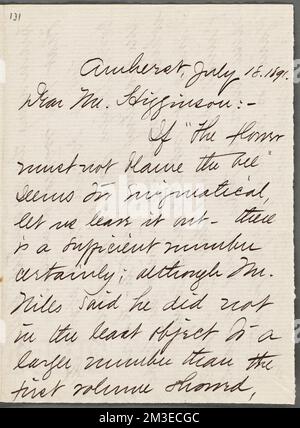 131
Amherst, July 18. 1891.
Dear Mr. Higginson:-
If "The flower
must not blame the bee"
seems too enigmatical,
let us leave it out - there
is a sufficient number
certainly; although Mr.
Niles said he did not
in the least object to a
larger number than the
first volume showed,
alamy
Image ID: 2M3ECGC
www.alamy.com